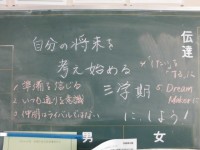 伝達
自分の将来を
考え始める
三学期
Dream
Maker
にしよう!
1 準備を信じる
2 いつも通りを意識
3 仲間はライバルではない
男
女